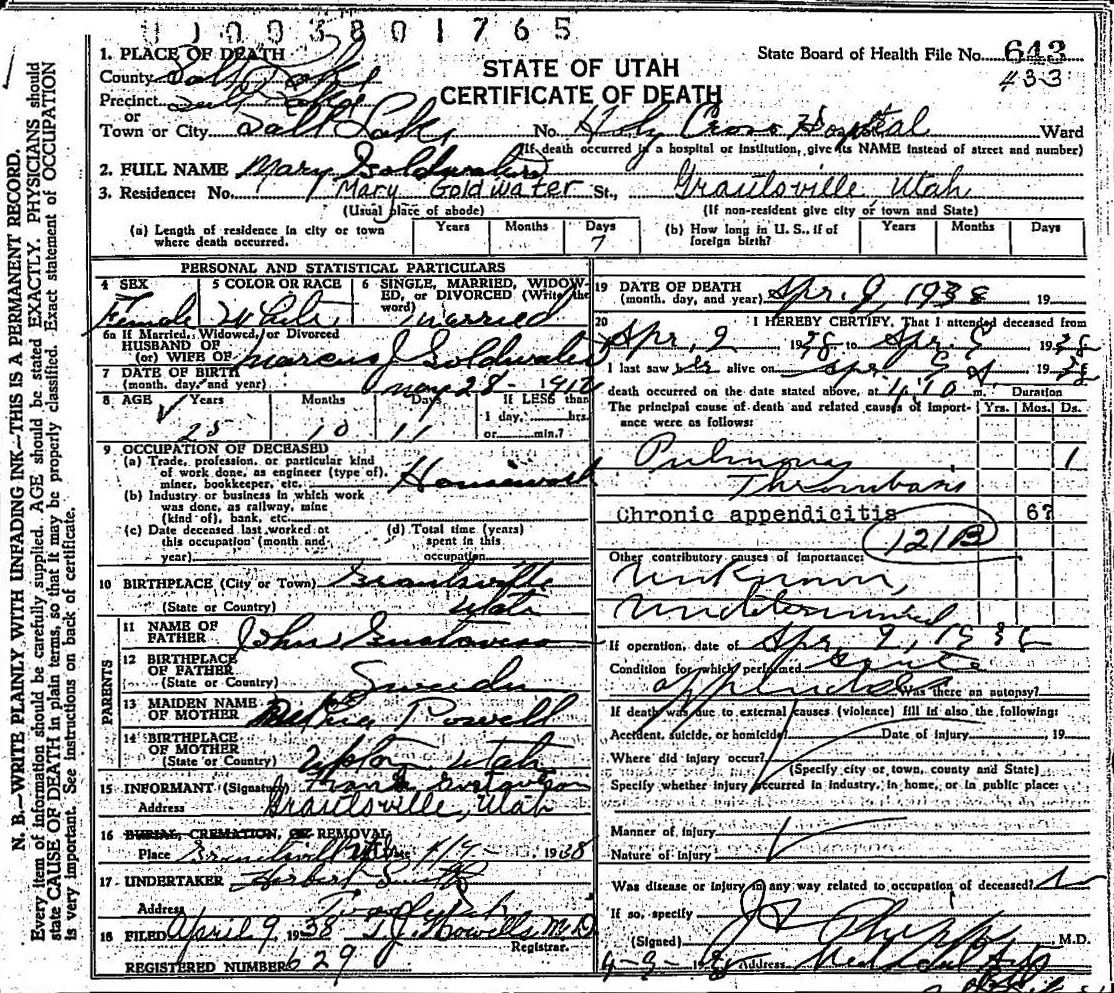 1003801765
1. PLACE OF DEATH
County Salt Lake
Precinct Salt Lake
or
Town or City Salt Lake, No. Holy Cross Hospital Ward
(If death occurred in a hospital or institution, give its NAME instead of street and number)
State Board of Health File No. 643
433
STATE OF UTAH
CERTIFICATE OF DEATH
2. FULL NAME Mary Goldwater
3. Residence: No. Mary Goldwater St., Grantsville, Utah
(Usual place of abode) (If non-resident give city or town and State)
(a) Length of residence in city or town where death occurred. Years Months Days 7
(b) How long in U. S., if of foreign birth? Years Months Days
PERSONAL AND STATISTICAL PARTICULARS
4 SEX Female
5 COLOR OR RACE White
6 SINGLE, MARRIED, WIDOWED, or DIVORCED (Write the word) Married
6a If Married, Widowed, or Divorced
HUSBAND OF
(or) WIFE OF Marcus J Goldwater
7 DATE OF BIRTH
(month, day, and year) May 28 - 1912
8 AGE Years Months Days If LESS than
1 day, hrs.
or min.?
25 10 11
9 OCCUPATION OF DECEASED
(a) Trade, profession, or particular kind
of work done, as engineer (type of),
miner, bookkeeper, etc. Housework
(b) Industry or business in which work
was done, as railway, mine
(kind of), bank, etc.
(c) Date deceased last worked at
this occupation (month and
year)
(d) Total time (years)
spent in this
occupation
10 BIRTHPLACE (City or Town) Grantsville
(State or Country) Utah
PARENTS
11 NAME OF
FATHER John Gustaveson
12 BIRTHPLACE
OF FATHER
(State or Country) Sweden
13 MAIDEN NAME
OF MOTHER Powell
14 BIRTHPLACE
OF MOTHER
(State or Country) Upton Utah
15 INFORMANT (Signature) Frank
Address Grantsville, Utah
16 BURIAL, CREMATION, OR REMOVAL
Place Grantsville 1938
17 UNDERTAKER Herbert
Address Utah
18 FILED April 9 1938 T.J. Howells M.D.
Registrar.
REGISTERED NUMBER 629
19 DATE OF DEATH
(month, day, and year) Apr. 9, 1938 19
20 I HEREBY CERTIFY, That I attended deceased from
Apr. 2 1938 to Apr. 9 1938
I last saw her alive on Apr 1938
death occurred on the date stated above, at 4:10 m. Duration
The principal cause of death and related causes of importance were as follows: Yrs. Mos. Ds.
Pulmonary 1
Thrombosis
Chronic appendicitis 6?
121B
Other contributory causes of importance:
Unknown,
Undetermined
If operation, date of Apr 2, 1938
Condition for which performed acute
appendicitis Was there an autopsy?
If death was due to external causes (violence) fill in also the following:
Accident, suicide, or homicide? Date of injury 19
Where did injury occur?
(Specify city or town, county and State)
Specify whether injury occurred in industry, in home, or in public place:
Manner of injury
Nature of injury
Was disease or injury in any way related to occupation of deceased?
If so, specify
(Signed) M.D.
4-9-1938 Address Medical Arts
N. B.—WRITE PLAINLY WITH UNFADING INK—THIS IS A PERMANENT RECORD.
Every item of information should be carefully supplied. AGE should be stated EXACTLY. PHYSICIANS should
state CAUSE OF DEATH in plain terms, so that it may be properly classified. Exact statement of OCCUPATION
is very important. See instructions on back of certificate.